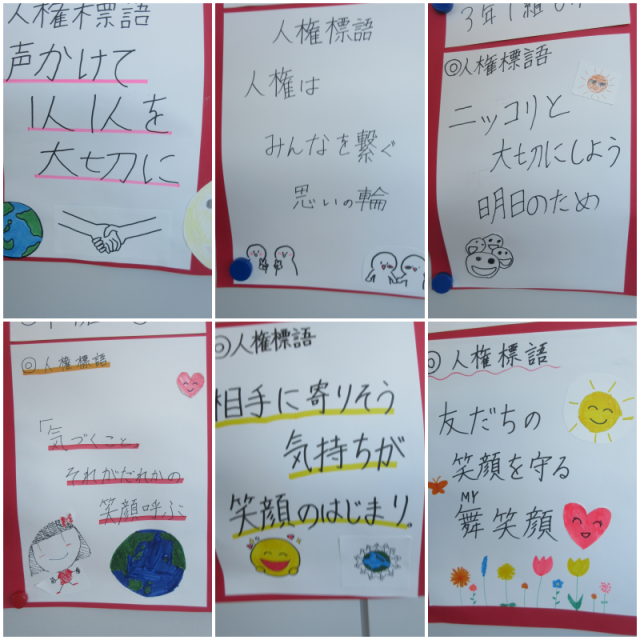 人権標語
声かけて
1人1人を
大切に
人権標語
人権は
みんなを繋ぐ
思いの輪
3年1組
◎人権標語
ニッコリと
大切にしよう
明日のため
◎人権標語
「気づくこと
それがだれかの
笑顔呼ぶ
◎人権標語
相手に寄りそう
気持ちが
笑顔のはじまり。
◎人権標語
友だちの
笑顔を守る
MY
舞笑顔